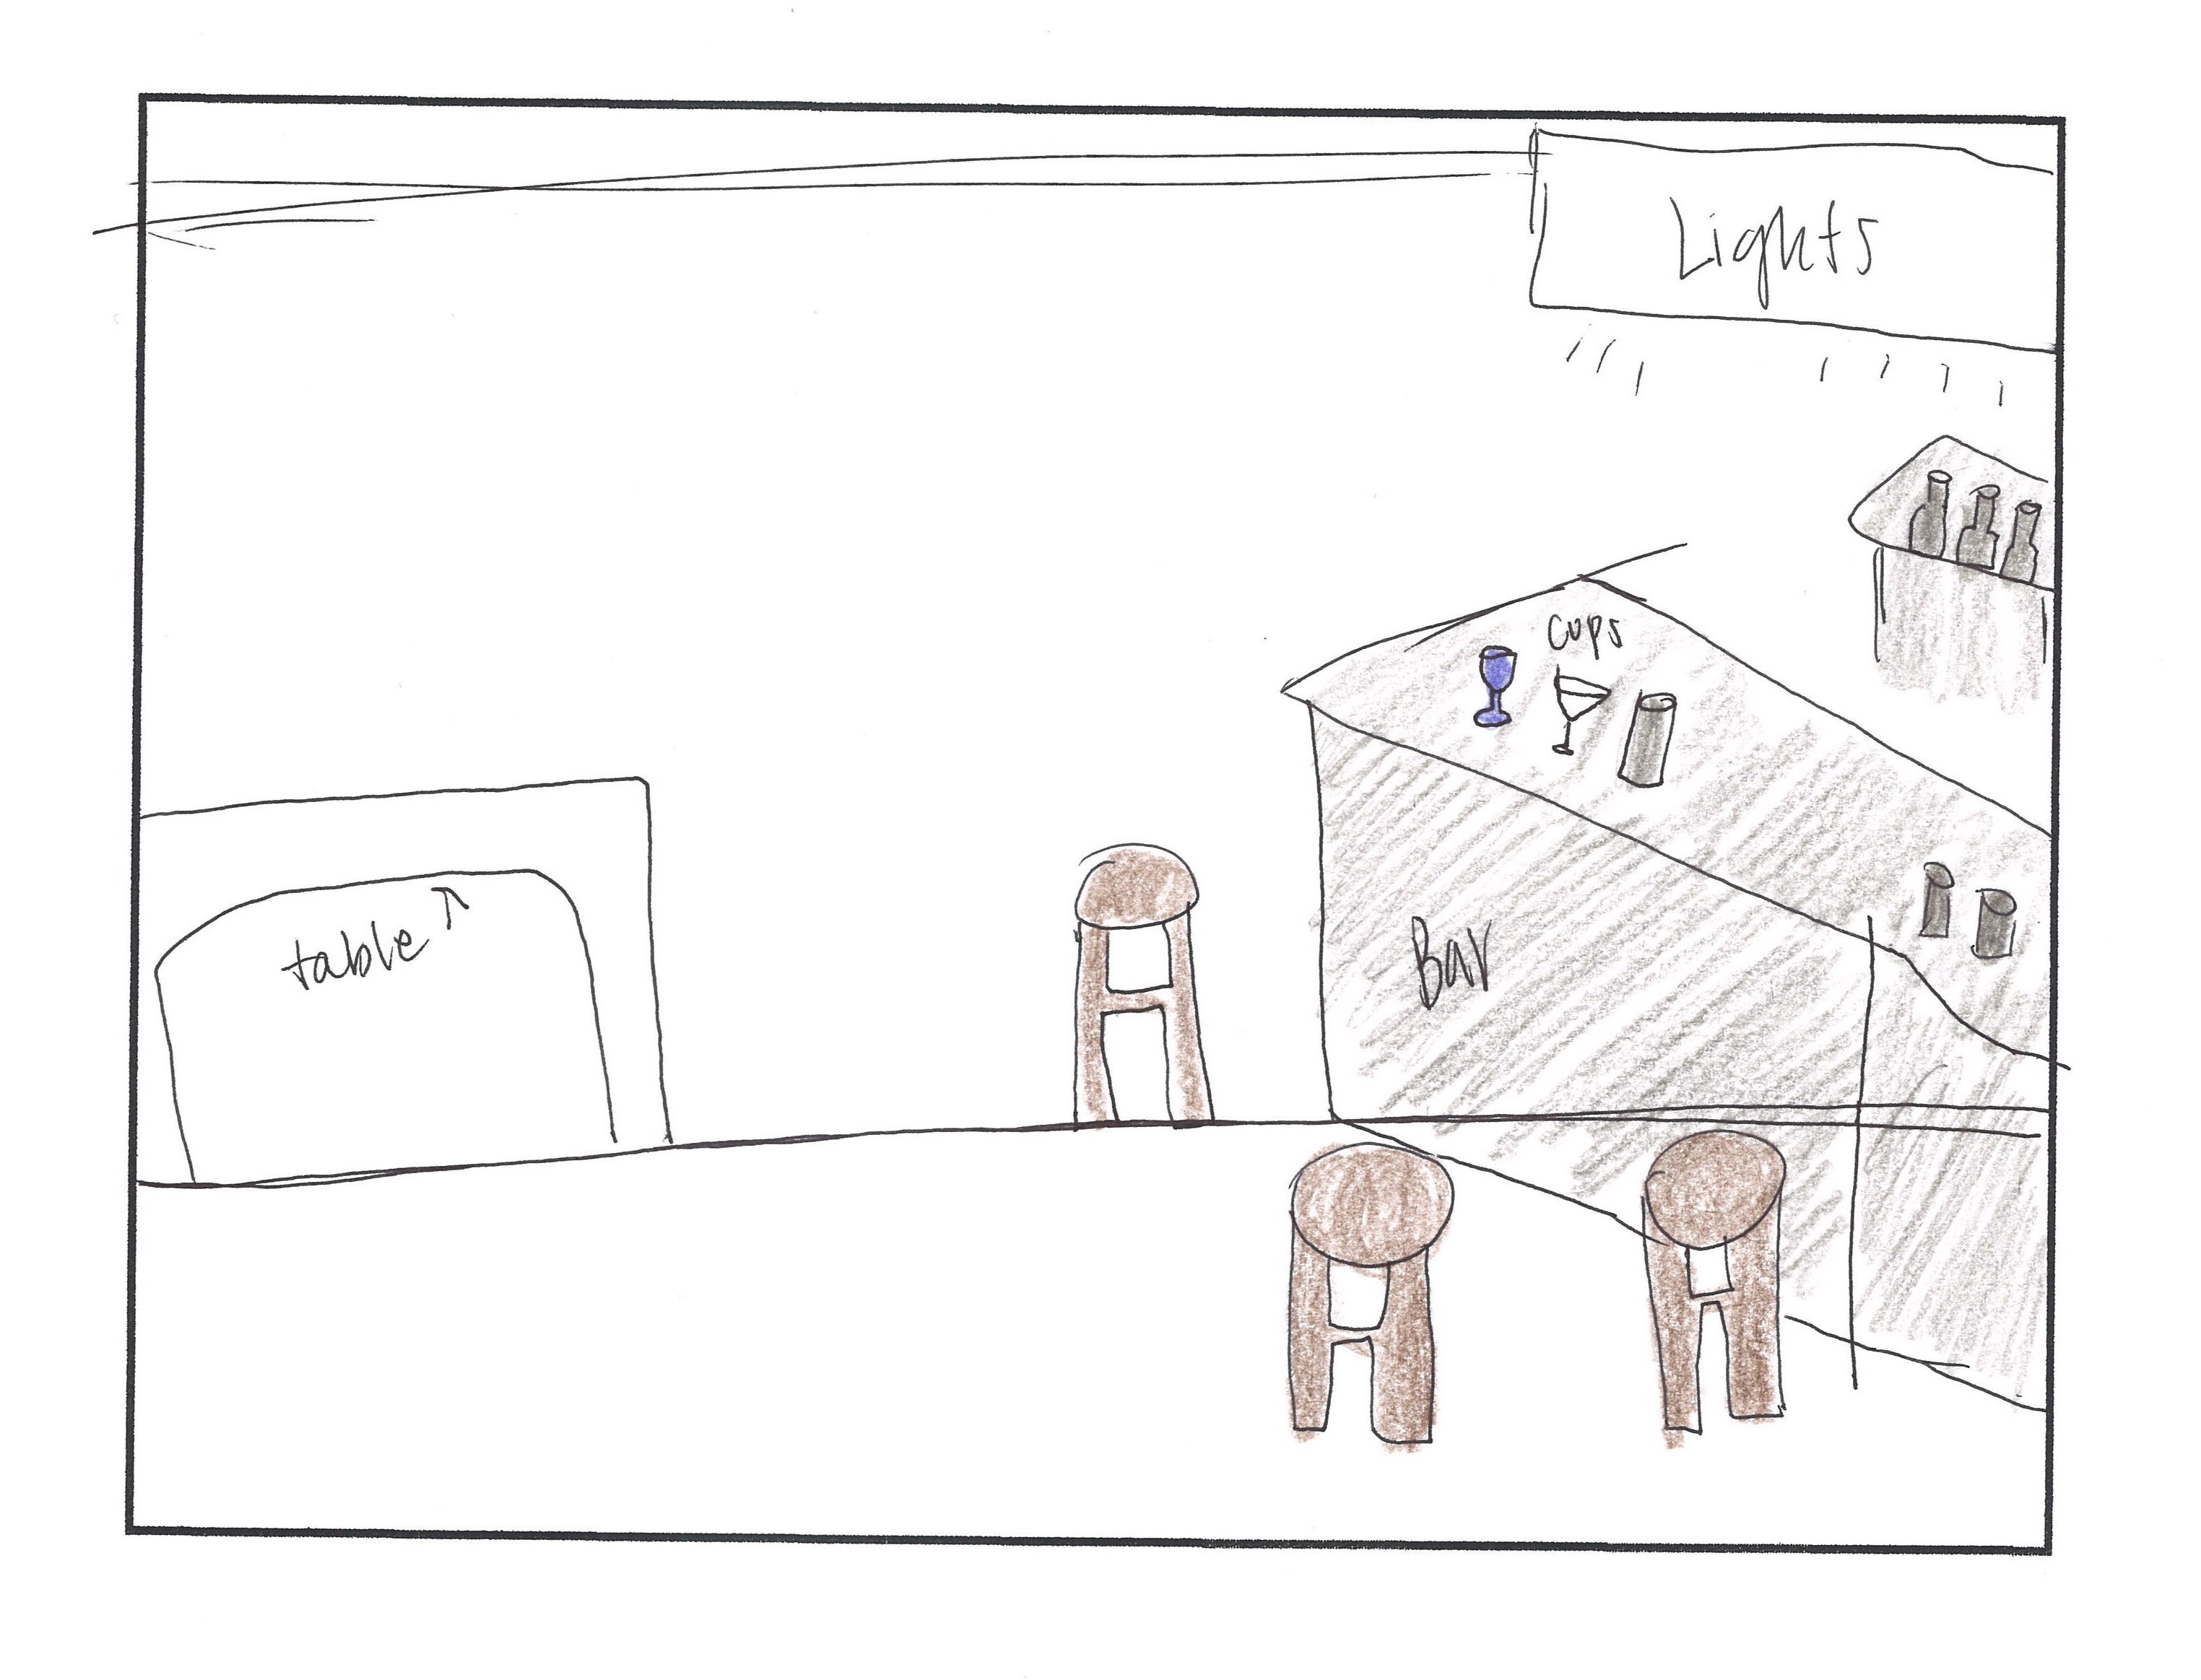 Lights
cups
table
Bar